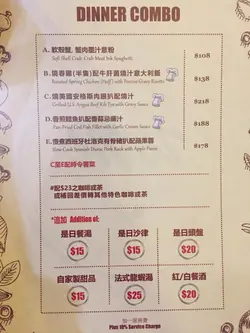 DINNER COMBO
A. 軟殼蟹, 蟹肉墨汁意粉 $108
Soft Shell Crab, Crab Meat Ink Spaghetti
B. 燒春雞(半隻)配牛肝菌燒汁意大利飯 $138
Roasted Spring Chicken (Half) with Porcini Gravy Risotto
C. 燒美國安格斯肉眼扒配燒汁 $218
Grilled U.S. Angus Beef Rib Eye with Gravy Sauce
D. 香煎鱈魚扒配香蒜忌廉汁 $188
Pan Fried Cod Fish Fillet with Garlic Cream Sauce
E. 慢煮西班牙杜洛克有骨豬扒配蘋果蓉 $178
Slow Cook Spanish Duroc Pork Rack with Apple Puree
C至E配時令薯菜
#配$23之咖啡或茶
或補回差價轉其他特色咖啡或茶
*追加 Addition of:
是日餐湯
$15
是日沙律
$15
是日頭盤
$20
自家製甜品
$15
法式龍蝦湯
$25
紅/白餐酒
$20
加一服務費
Plus 10% Service Charge